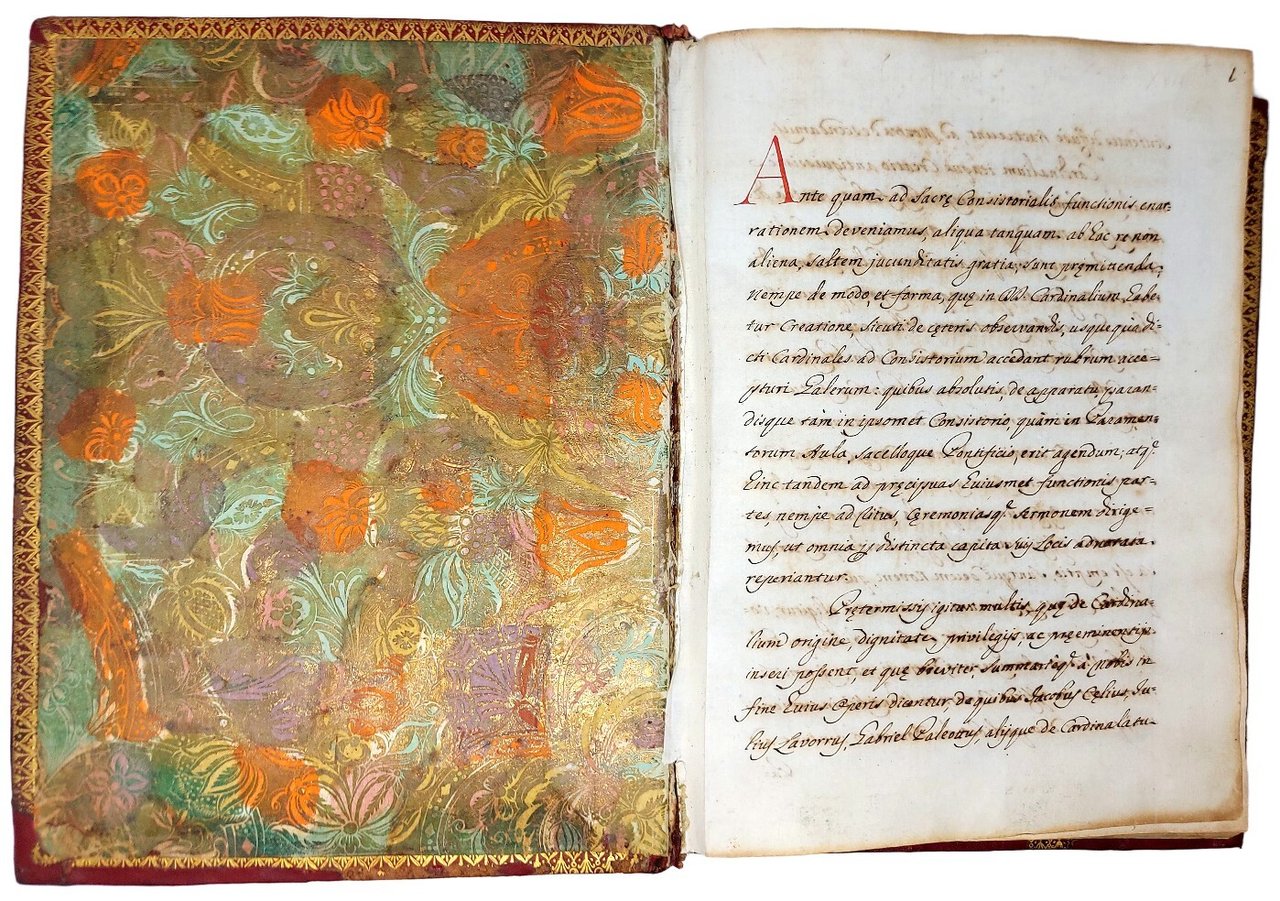 1
Ante quam ad Sacrę Consistorialis functionis enar-
rationem deveniamus, aliqua tanquam ab hoc re non
aliena, saltem jucunditatis gratia, sunt pręmittenda,
Nempe de modo, et forma, quę in Cardinalium habe-
tur Creatione sicuti de cęteris observandis, usquequo di-
cti Cardinales ad Consistorium accedant rubrum acce-
pturi Galerum: quibus absolutis, de apparatu, paran-
disque tàm in ipsomet Consistorio, quàm in Paramen-
torum Aula, sacelloque Pontificio, erit agendum; atq.
hinc tandem ad pręcipuas huiusmet functionis par-
tes, nempe ad Ritus, Cęremoniasq. sermonem dirige-
mus, ut omnia distincta capita suis locis adnotata
reperiantur.
Prętermissis igitur multis, quę de Cardina-
lium origine, dignitate, privilegijs, ac pręeminentijs
inseri possent, et quę breviter, summarieq. à nobis in
fine huius Operis dicentur de quibus Jacobus Cęlius, Ju-
lius Lavorrus, Gabriel Paleottus, alijsque de Cardinalatu